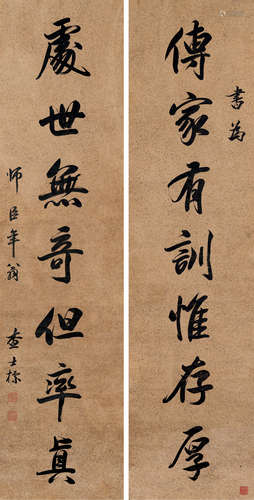 傳家有訓惟存厚
書為
處世無奇但率真
師臣年翁
查士標